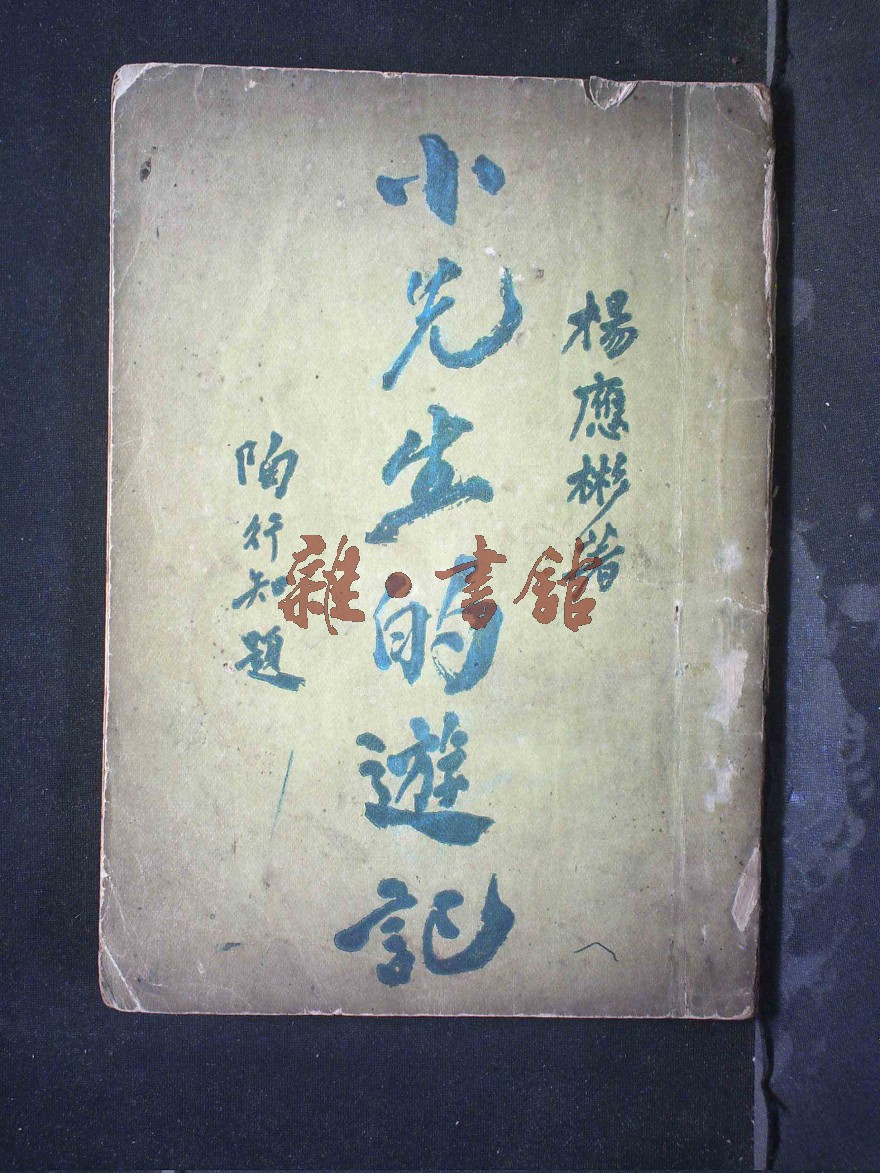 楊應彬著
小先生的遊記
陶行知題
雜·書館